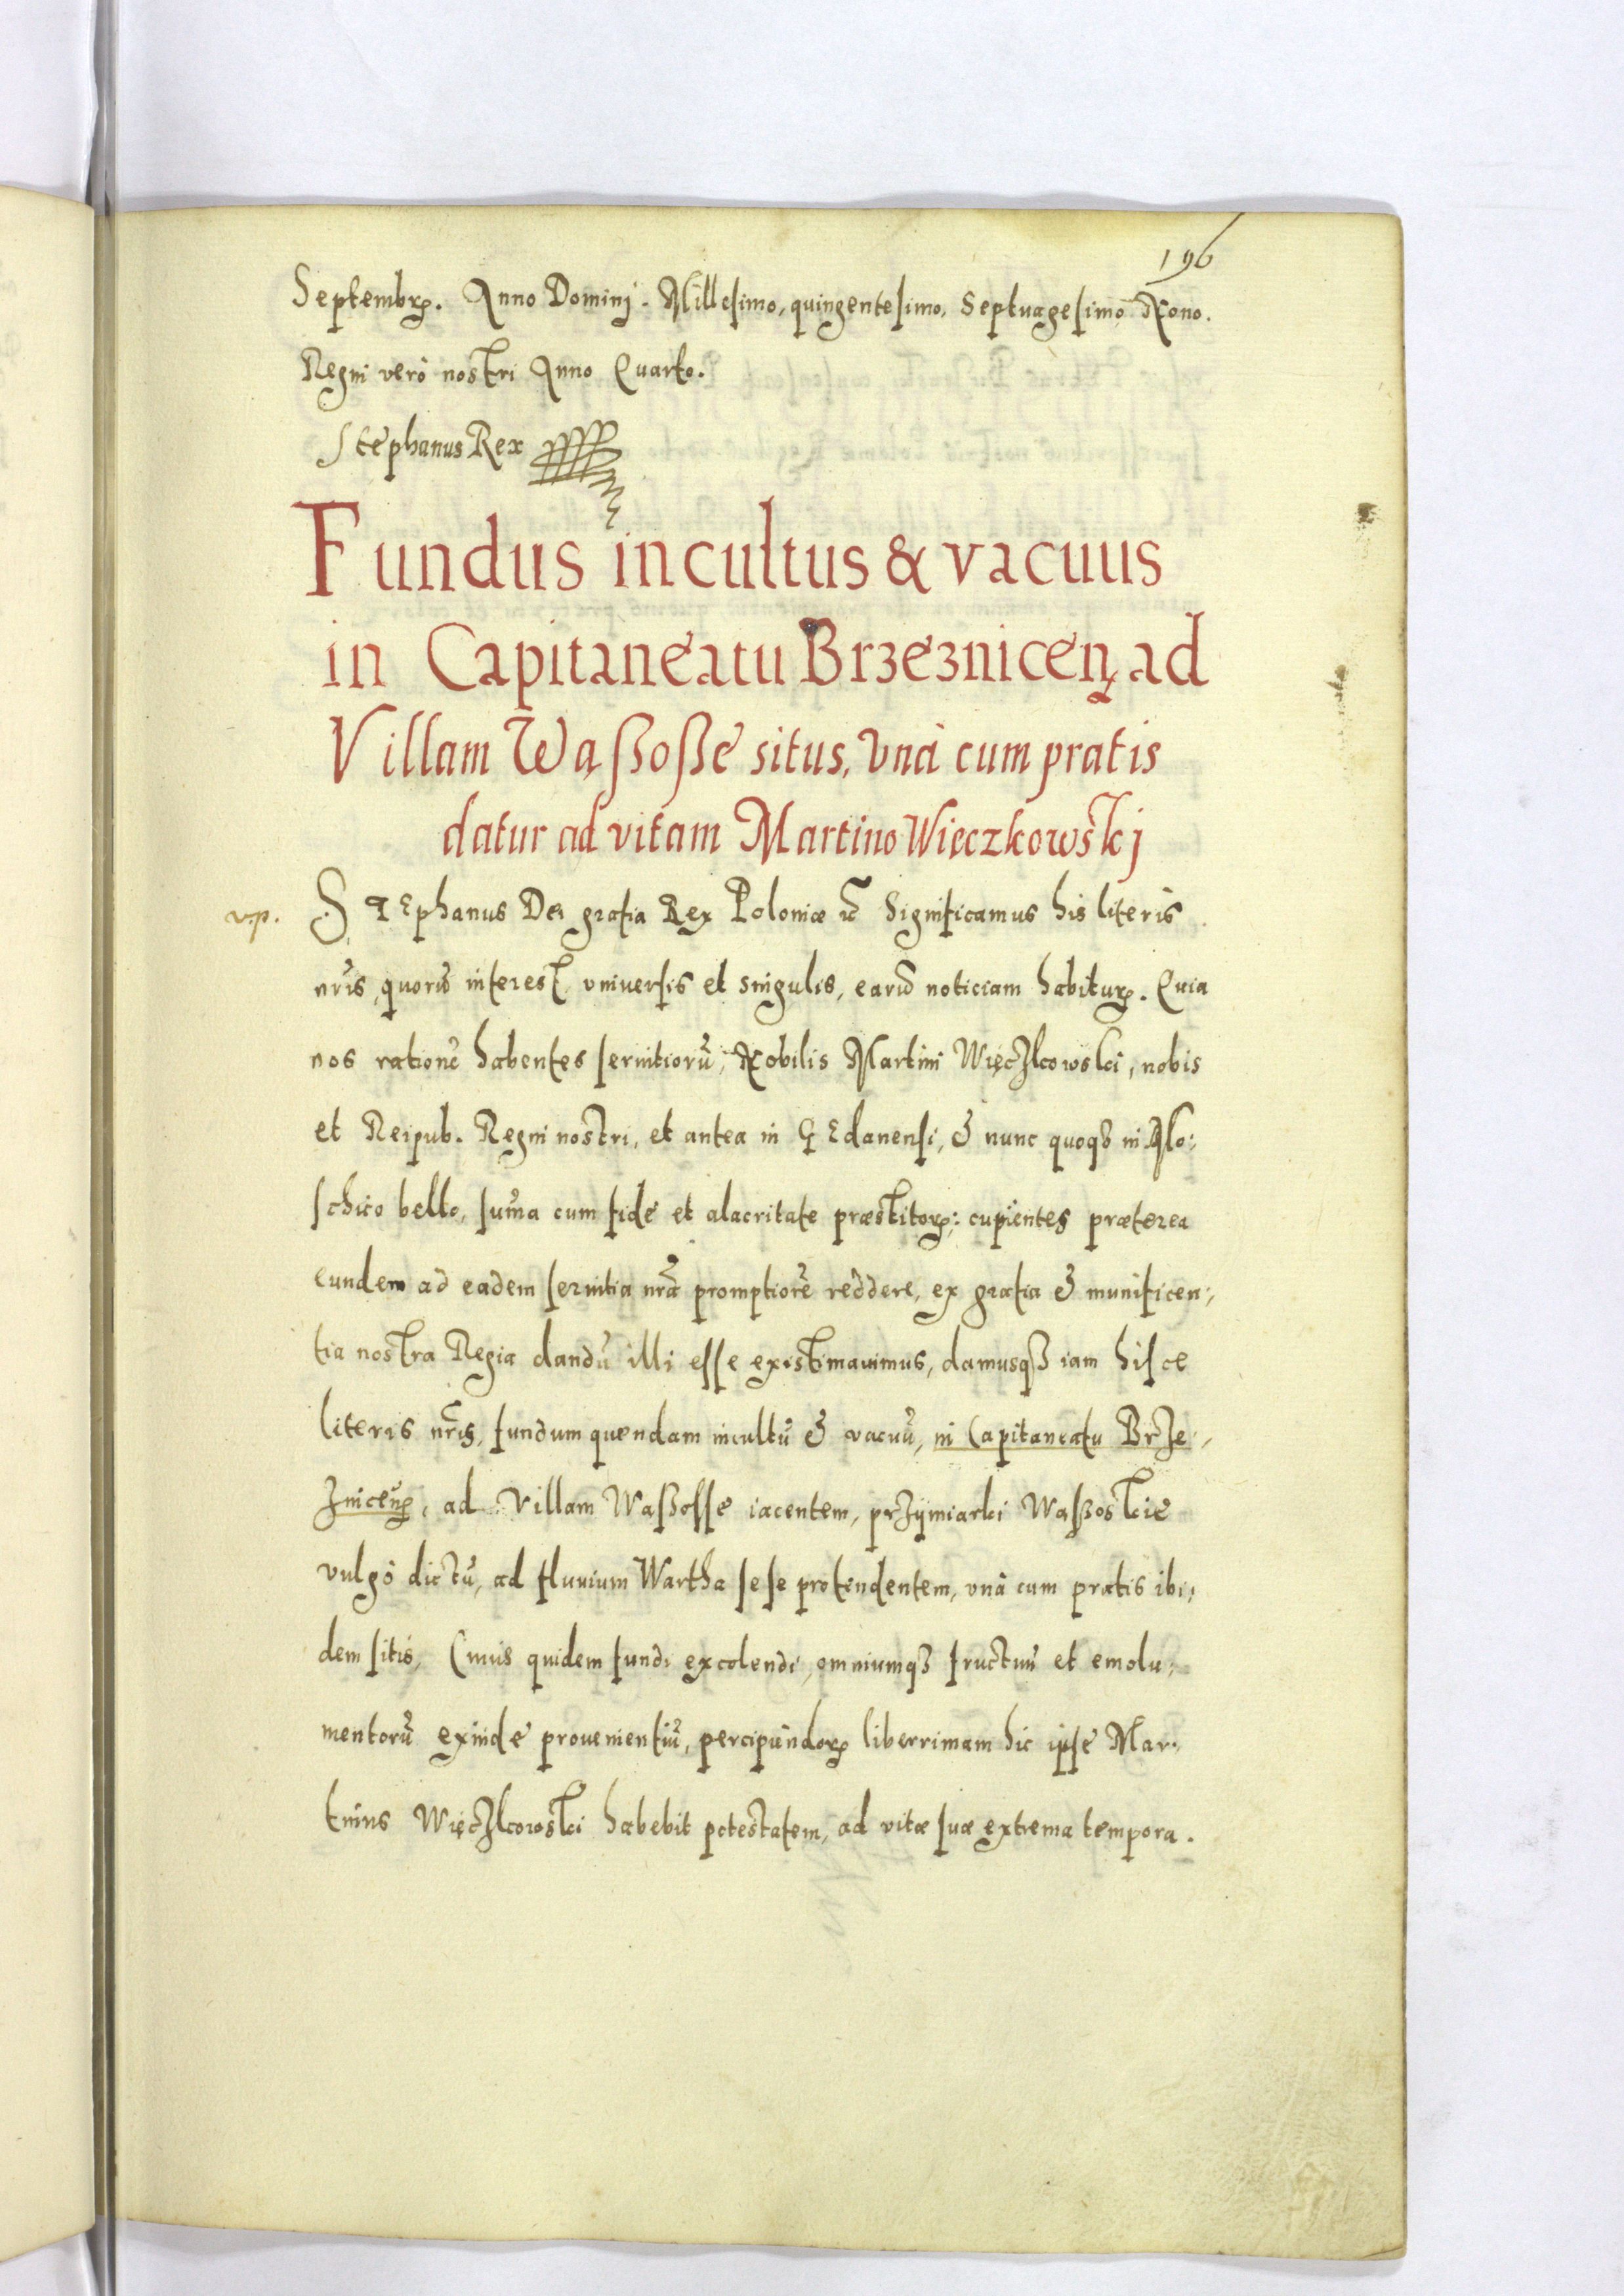 196
Septembrꝭ. Anno Dominj. Millesimo, quingentesimo, Septuagesimo Nono.
Regni verò nostri Anno Quarto.
Stephanus Rex
Fundus incultus & vacuus
in Capitaneatu Brzeznicenꝭ ad
Villam Wąßoße situs, vnà cum pratis
datur ad vitam Martino Wieczkowskj
v.p. Stephanus Dei gratia Rex Poloniæ etc̃ Significamus his literis
nr̃is, quorũ interest, vniuersis et singulis, earũ noticiam habiturꝭ. Quia
nos rationẽ habentes seruitiorũ, Nobilis Martini Więczkowski, nobis
et Reipub. Regni nostri, et antea in Gedanensi, & nunc quoqꝫ in Mo:
schico bello, sum̃a cum fide et alacritate præstitorꝭ: cupientes præterea
eundem ad eadem seruitia nr̃a promptiorẽ reddere, ex gratia & munificen:
tia nostra Regia dandũ illi esse existimauimus, damusqꝫ iam hisce
literis nr̃is, fundum quendam incultũ & vacuũ, in Capitaneatu Brze:
znicen̄ꝭ, ad Villam Waßosse iacentem, przymiarki Waßoskie
vulgò dictũ, ad fluuium Wartha sese protendentem, vnà cum pratis ibi:
dem sitis, Cuius quidem fundi excolendi, omniumqꝫ fructuũ et emolu:
mentorũ exinde prouenientiũ, percipiundorꝭ liberrimam hic ipse Mar:
tinus Więczkowski habebit potestatem, ad vitæ suæ extrema tempora.